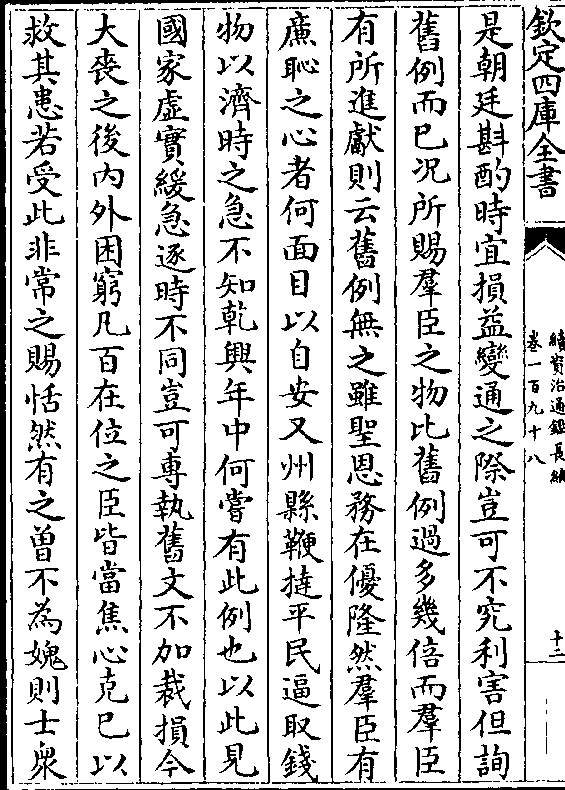 欽定四庫全書
續資治通鑑長編
卷一百九十八
十二
是朝廷斟酌時宜損益變通之際豈可不究利害但詢
舊例而已况所賜羣臣之物比舊例過多幾倍而羣臣
有所進獻則云舊例無之雖聖恩務在優隆然羣臣有
廉恥之心者何面目以自安又州縣鞭撻平民逼取錢
物以濟時之急不知乾興年中何嘗有此例也以此見
國家虛實緩急逐時不同豈可専執舊文不加裁損今
大喪之後内外困窮凡百在位之臣皆當焦心克已以
救其患若受此非常之賜恬然有之曽不為媿則士衆